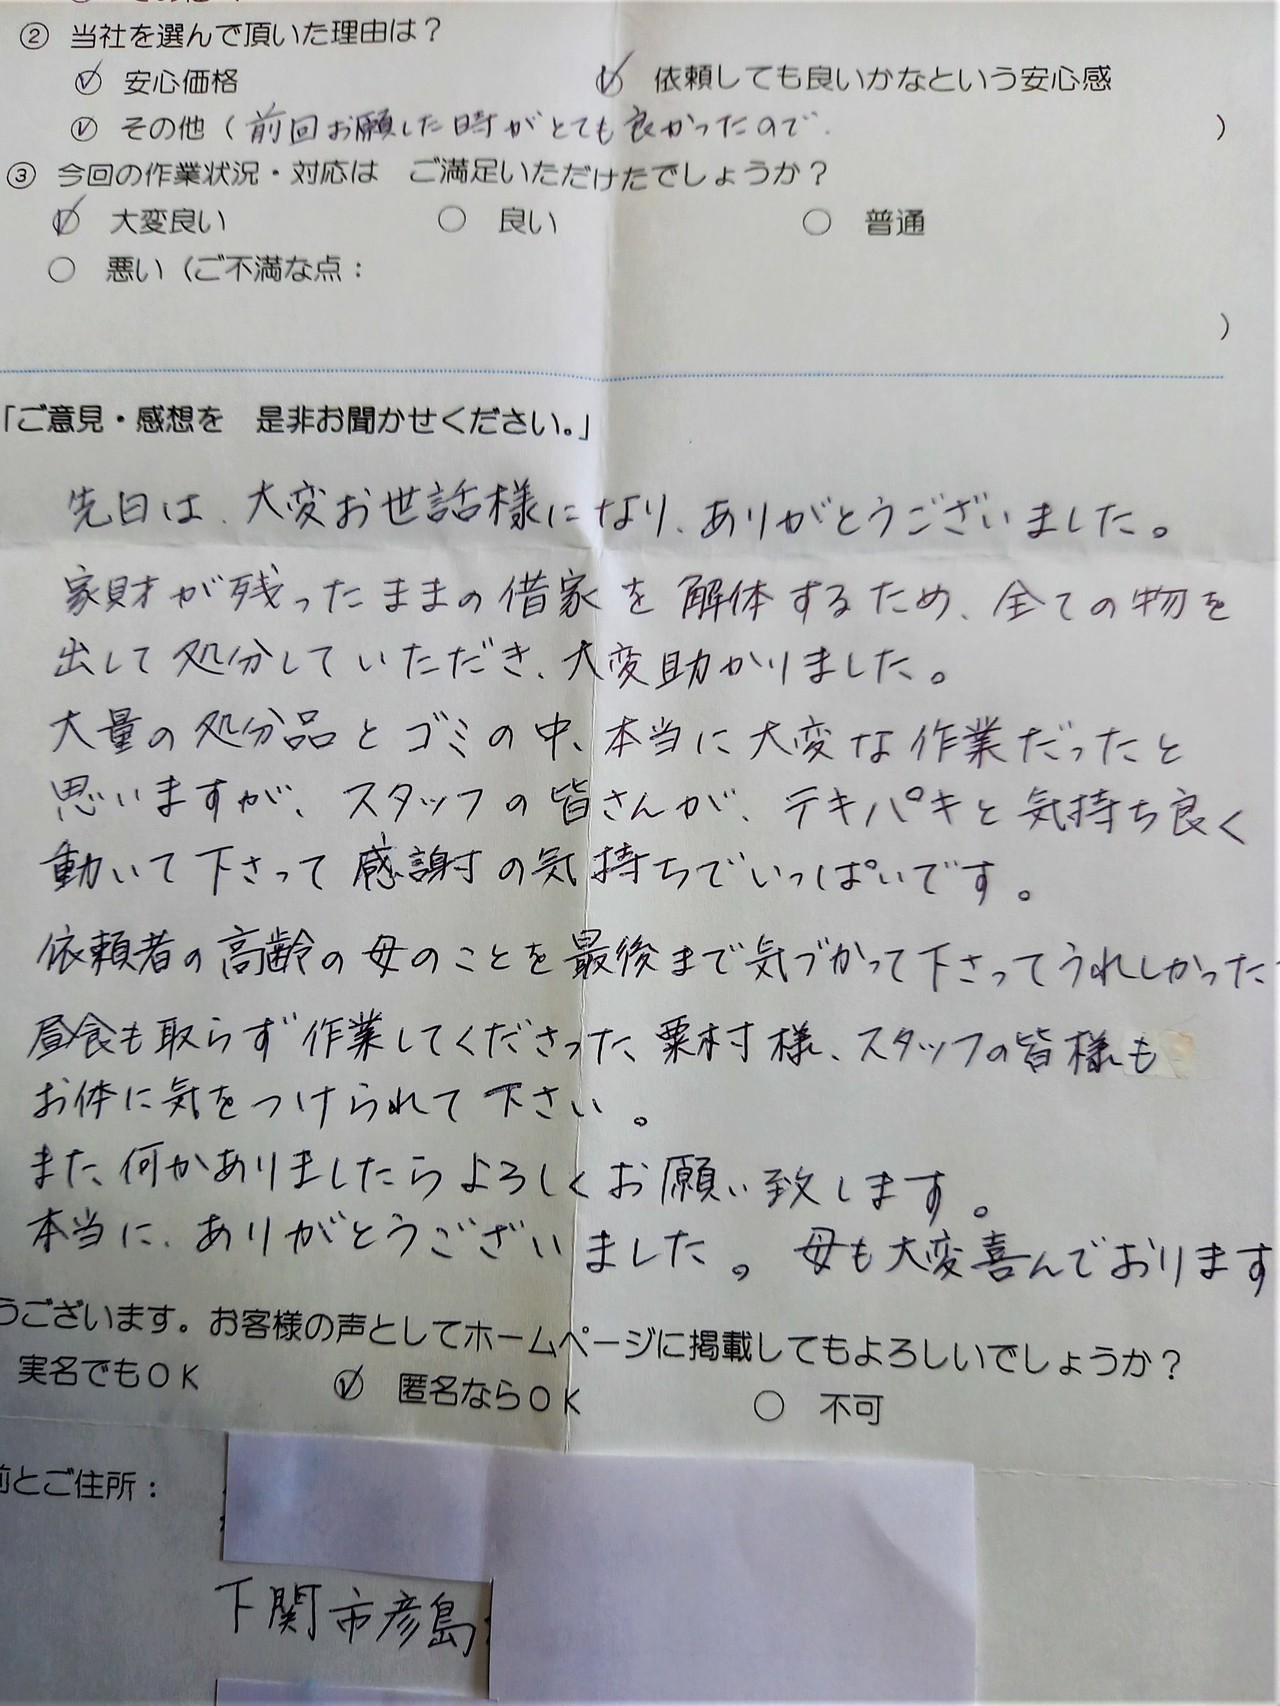 ② 当社を選んで頂いた理由は？
安心価格 依頼しても良いかなという安心感
その他（前回お願いした時がとても良かったので．）
③ 今回の作業状況・対応は ご満足いただけたでしょうか？
大変良い ○ 良い ○ 普通
○ 悪い（ご不満な点：
）
「ご意見・感想を 是非お聞かせください。」
先日は、大変お世話様になり、ありがとうございました。
家財が残ったままの借家を解体するため、全ての物を
出して処分していただき、大変助かりました。
大量の処分品とゴミの中、本当に大変な作業だったと
思いますが、スタッフの皆さんが、テキパキと気持ち良く
動いて下さって感謝の気持ちでいっぱいです。
依頼者の高齢の母のことを最後まで気づかって下さってうれしかった
昼食も取らず作業してくださった、粟村様、スタッフの皆様も
お体に気をつけられて下さい。
また、何かありましたらよろしくお願い致します。
本当に、ありがとうございました。母も大変喜んでおります
うございます。お客様の声としてホームページに掲載してもよろしいでしょうか？
実名でもＯＫ 匿名ならＯＫ ○ 不可
前とご住所：
下関市彦島